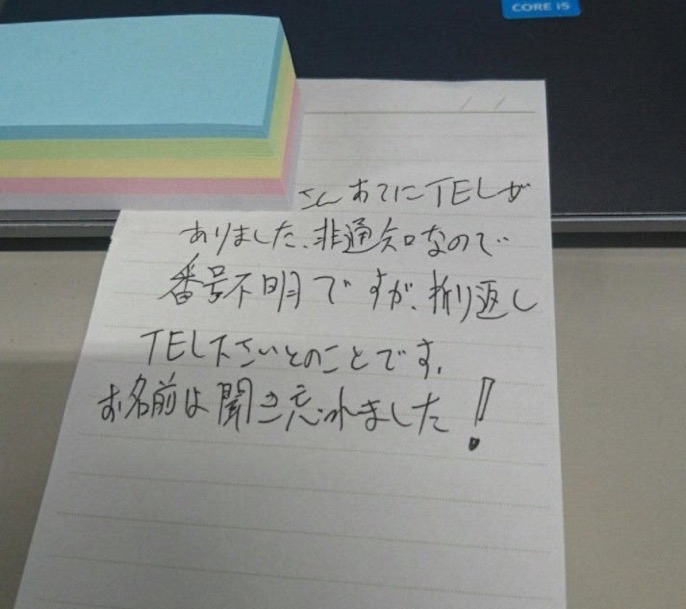 CORE i5
さんあてにTELが
ありました、非通知なので
番号不明ですが、折り返し
TEL下さいとのことです。
お名前は聞き忘れました!